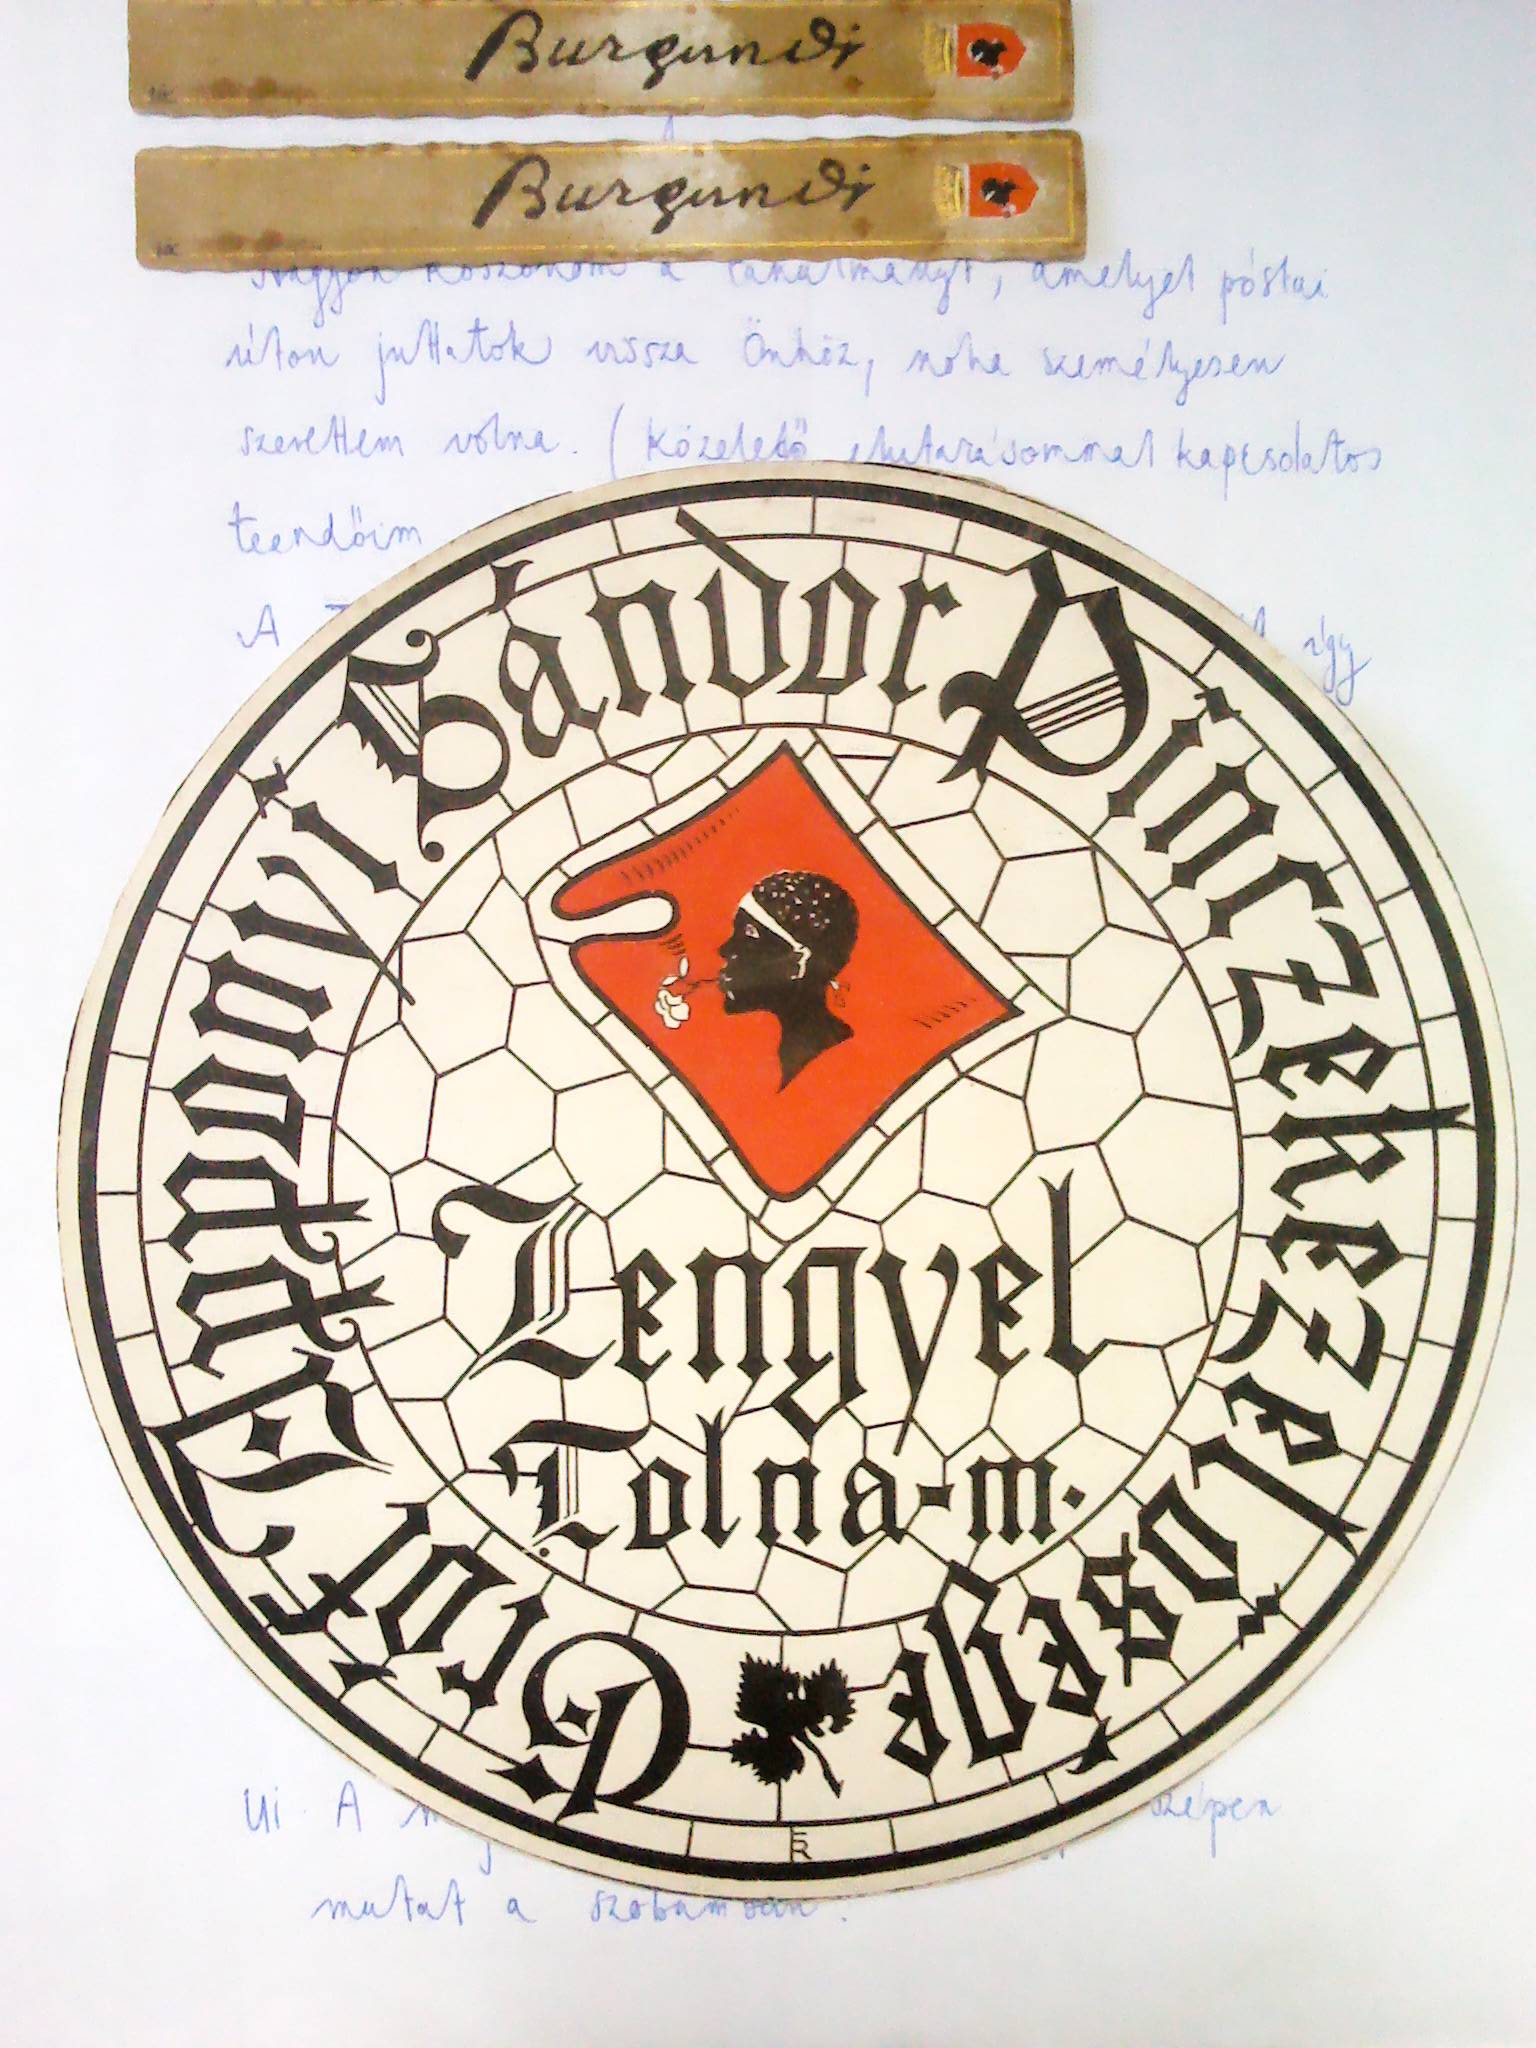 Burgundi
Burgundi
Nagyon köszönöm a tanulmányt, amelyet póstai
úton juttatok vissza Önhöz, noha személyesen
szerettem volna. (Közeledő elutazásommal kapcsolatos
teendőim
A
így
Gróf Apponyi Sándor Pinczekezelősége
Lengyel
Tolna-m.
ER
Ui. A
szépen
mutat a szobámban.